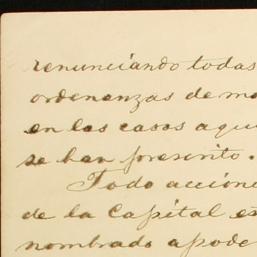 renunciando todas
ordenanzas de
en los casos aqui
se han prescrito.
Todo accion
de la Capital es
nombrado apode